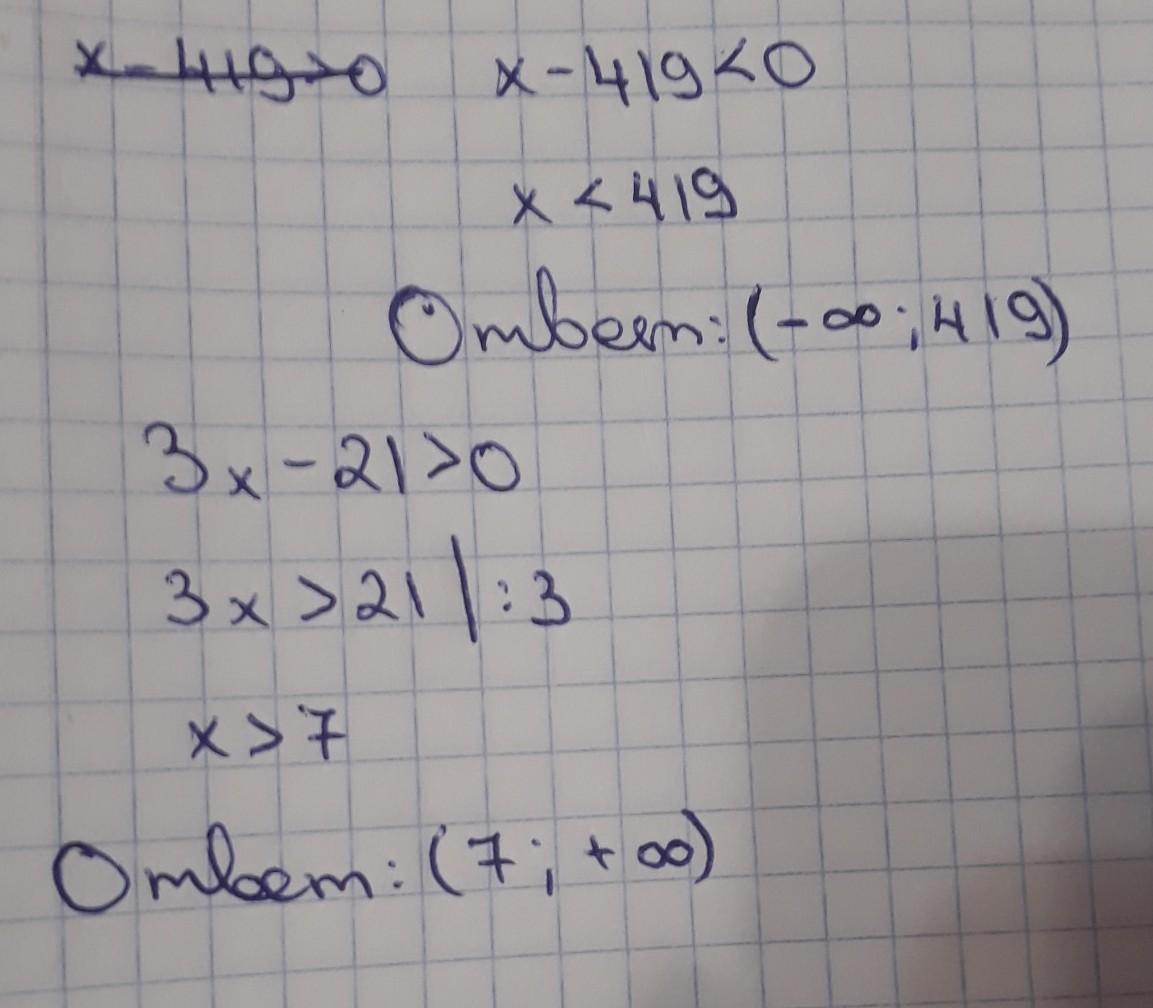 x - 419 > 0 x - 419 < 0
x < 419
Ответ: (-∞; 419)
3x - 21 > 0
3x > 21 | : 3
x > 7
Ответ: (7; +∞)